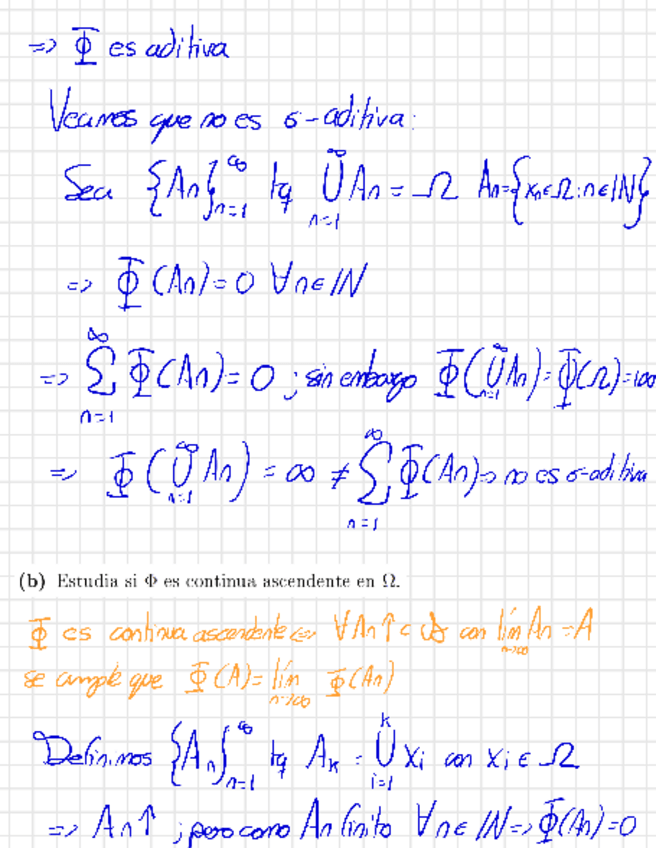 => Φ es aditiva
Veamos que no es σ-aditiva:
Sea {An}_{n=1}^∞ tq ⋃_{n=1}^∞ An = Ω An={xn∈Ω:n∈ℕ}
=> Φ(An)=0 ∀n∈ℕ
=> ∑_{n=1}^∞ Φ(An)=0 ; sin embargo Φ(⋃_{n=1}^∞ An)=Φ(Ω)=+∞
=> Φ(⋃_{n=1}^∞ An) = ∞ ≠ ∑_{n=1}^∞ Φ(An) => no es σ-aditiva
(b) Estudia si Φ es continua ascendente en Ω.
Φ es continua ascendente <=> ∀An↑⊂ 𝒜 con lím_{n→∞} An = A
se cumple que Φ(A)= lím_{n→∞} Φ(An)
Definimos {An}_{n=1}^∞ tq A_k = ⋃_{i=1}^k xi con xi ∈ Ω
=> An↑ ; pero como An finito ∀n∈ℕ => Φ(An)=0